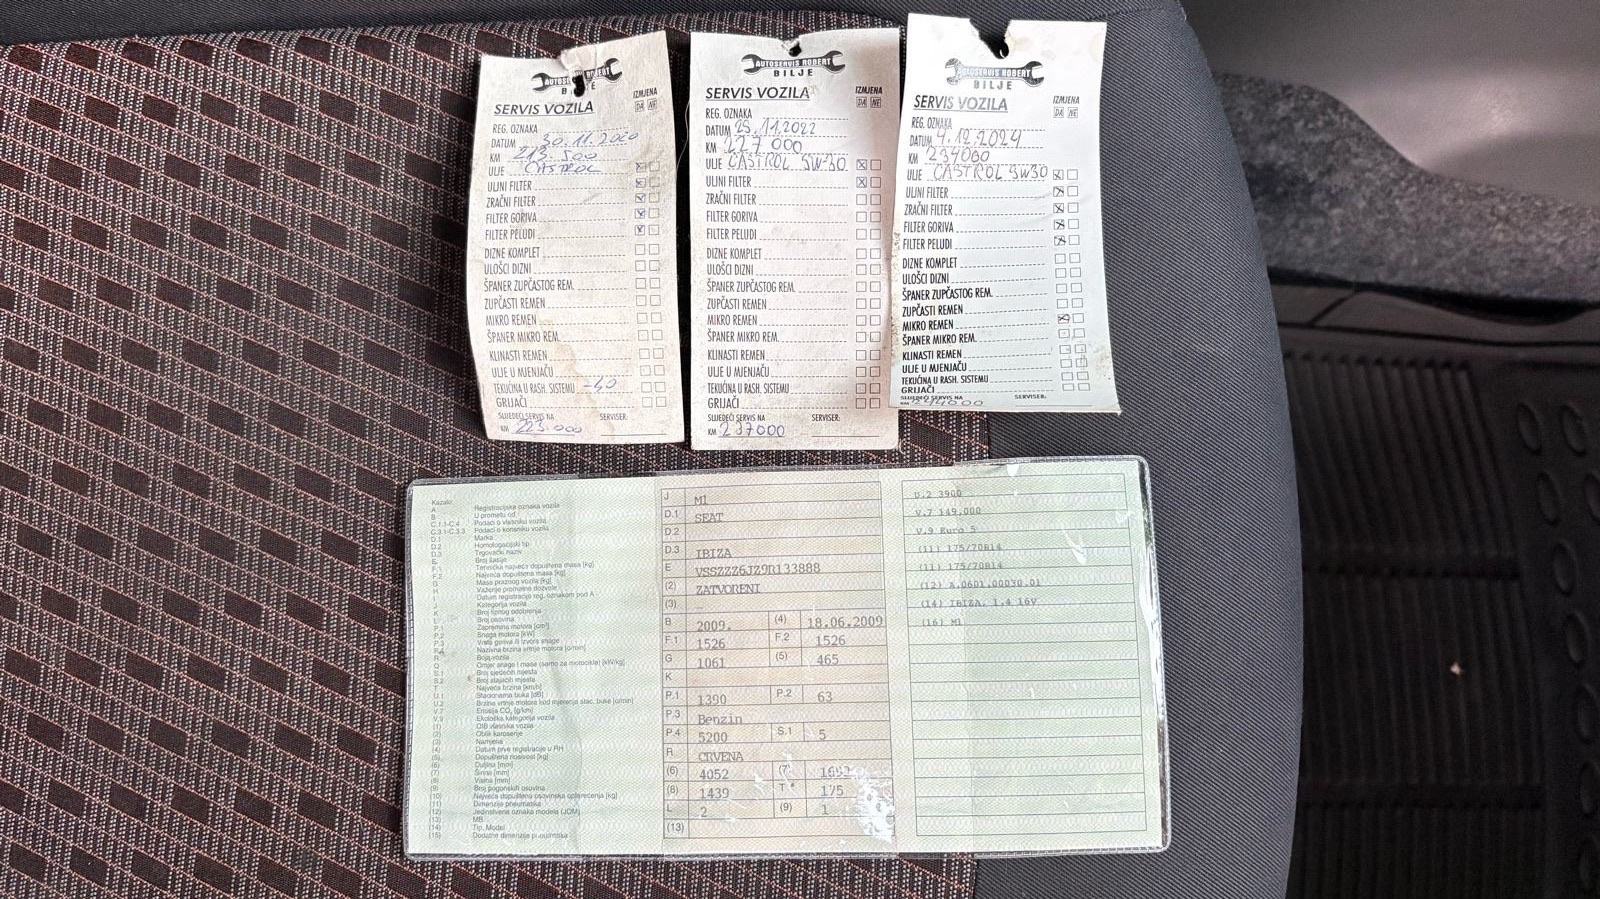 AUTOSERVIS ROBERT
BILJE
SERVIS VOZILA
IZMJENA
DA NE
REG. OZNAKA
DATUM 30.11.2020
KM 213.500
ULJE CASTROL
ULJNI FILTER
ZRAČNI FILTER
FILTER GORIVA
FILTER PELUDI
DIZNE KOMPLET
ULOŠCI DIZNI
ŠPANER ZUPČASTOG REM.
ZUPČASTI REMEN
MIKRO REMEN
ŠPANER MIKRO REM.
KLINASTI REMEN
ULJE U MJENJAČU
TEKUĆINA U RASH. SISTEMU -40
GRIJAČI
SLIJEDEĆI SERVIS NA
SERVISER:
KM 223.000
AUTOSERVIS ROBERT
BILJE
SERVIS VOZILA
IZMJENA
DA NE
REG. OZNAKA
DATUM 25.11.2022
KM 227000
ULJE CASTROL 5W-30
ULJNI FILTER
ZRAČNI FILTER
FILTER GORIVA
FILTER PELUDI
DIZNE KOMPLET
ULOŠCI DIZNI
ŠPANER ZUPČASTOG REM.
ZUPČASTI REMEN
MIKRO REMEN
ŠPANER MIKRO REM.
KLINASTI REMEN
ULJE U MJENJAČU
TEKUĆINA U RASH. SISTEMU
GRIJAČI
SLIJEDEĆI SERVIS NA
SERVISER:
KM 237000
AUTOSERVIS ROBERT
BILJE
SERVIS VOZILA
IZMJENA
DA NE
REG. OZNAKA
DATUM 4.12.2024
KM 234000
ULJE CASTROL 5W30
ULJNI FILTER
ZRAČNI FILTER
FILTER GORIVA
FILTER PELUDI
DIZNE KOMPLET
ULOŠCI DIZNI
ŠPANER ZUPČASTOG REM.
ZUPČASTI REMEN
MIKRO REMEN
ŠPANER MIKRO REM.
KLINASTI REMEN
ULJE U MJENJAČU
TEKUĆINA U RASH. SISTEMU
GRIJAČI
SLIJEDEĆI SERVIS NA
SERVISER:
KM 244000
Kazalo:
A Registracijska oznaka vozila
B U prometu od
C.1.1-C.4 Podaci o vlasniku vozila
C.3.1-C.3.3 Podaci o korisniku vozila
D.1 Marka
D.2 Homologacijski tip
D.3 Trgovački naziv
E Broj šasije
F.1 Tehnička najveća dopuštena masa [kg]
F.2 Najveća dopuštena masa [kg]
G Masa praznog vozila [kg]
H Važenje prometne dozvole
I Datum registracije reg. oznakom pod A
J Kategorija vozila
K Broj tipnog odobrenja
L Broj osovina
P.1 Zapremina motora [cm³]
P.2 Snaga motora [kW]
P.3 Vrsta goriva ili izvora snage
P.4 Nazivna brzina vrtnje motora [o/min]
R Boja vozila
Q Omjer snage i mase (samo za motocikle) [kW/kg]
S.1 Broj sjedećih mjesta
S.2 Broj stajaćih mjesta
T Najveća brzina [km/h]
U.1 Stacionarna buka [dB]
U.2 Brzina vrtnje motora kod mjerenja stac. buke [o/min]
V.7 Emisija CO₂ [g/km]
V.9 Ekološka kategorija vozila
(1) OIB vlasnika vozila
(2) Oblik karoserije
(3) Namjena
(4) Datum prve registracije u RH
(5) Dopuštena nosivost [kg]
(6) Duljina [mm]
(7) Širina [mm]
(8) Visina [mm]
(9) Broj pogonskih osovina
(10) Najveće dopušteno osovinsko opterećenje [kg]
(11) Dimenzije pneumatika
(12) Jedinstvena oznaka modela (JOM)
(13) MB
(14) Tip, Model
(15) Dodatne dimenzije pneumatika
J M1
D.1 SEAT
D.2
D.3 IBIZA
E VSSZZZ6JZ9R133888
(2) ZATVORENI
(3) –
B 2009. (4) 18.06.2009
F.1 1526 F.2 1526
G 1061 (5) 465
K
P.1 1390 P.2 63
P.3 Benzin
P.4 5200 S.1 5
R CRVENA
(6) 4052 (7)
(8) 1439 T 175
L 2 (9) 1
(13)
U.2 3900
V.7 149,000
V.9 Euro 5
(11) 175/70R14
(11) 175/70R14
(12) A.0601.00030.01
(14) IBIZA, 1.4 16V
(16) M1